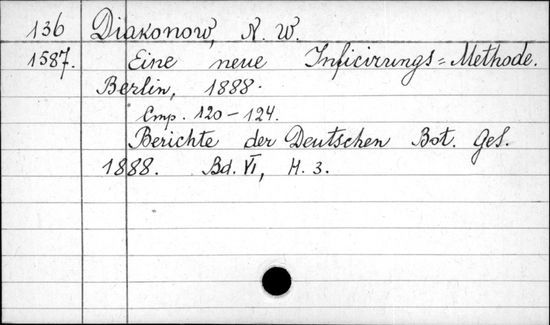 136 Diakonow, N. W.
1587. Eine neue Inficirrungs=Methode.
Berlin, 1888.
Стр. 120-124.
Berichte der Deutschen Bot. Ges.
1888. Bd. VI, H. 3.